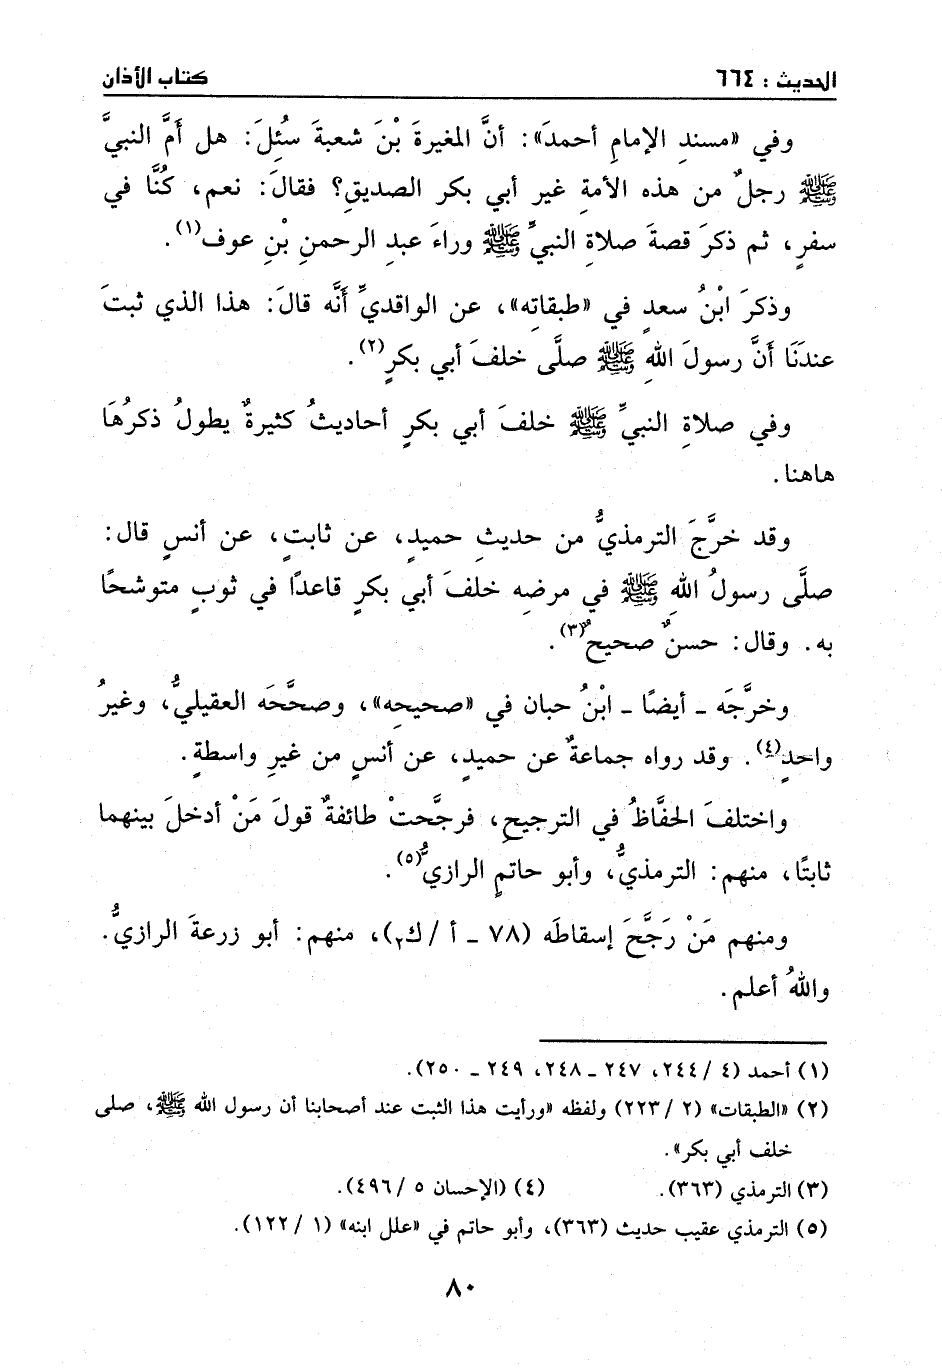 الحديث : ٦٦٤
كتاب الأذان
وفي «مسندِ الإمامِ أحمدَ»: أنَّ المغيرةَ بْنَ شعبةَ سُئِلَ: هل أَمَّ النبيَّ
ﷺ رجلٌ من هذه الأمةِ غير أبي بكر الصديقِ؟ فقالَ: نعم، كُنَّا في
سفرٍ، ثم ذكرَ قصةَ صلاةِ النبيِّ ﷺ وراءَ عبدِ الرحمنِ بْنِ عوف(١).
وذكرَ ابْنُ سعدٍ في «طبقاتِه»، عن الواقديِّ أَنَّه قالَ: هذا الذي ثبتَ
عندَنَا أَنَّ رسولَ اللهِ ﷺ صلَّى خلفَ أبي بكرٍ(٢).
وفي صلاةِ النبيِّ ﷺ خلفَ أبي بكرٍ أحاديثُ كثيرةٌ يطولُ ذكرُهَا
هاهنا.
وقد خرَّجَ الترمذيُّ من حديثِ حميدٍ، عن ثابتٍ، عن أنسٍ قال:
صلَّى رسولُ اللهِ ﷺ في مرضِه خلفَ أبي بكرٍ قاعدًا في ثوبٍ متوشحًا
به. وقال: حسنٌ صحيحٌ(٣).
وخرَّجَه ـ أيضًا ـ ابْنُ حبان في «صحيحِه»، وصحَّحَه العقيليُّ، وغيرُ
واحدٍ(٤). وقد رواه جماعةٌ عن حميدٍ، عن أنسٍ من غيرِ واسطةٍ.
واختلفَ الحفَّاظُ في الترجيحِ، فرجَّحتْ طائفةٌ قولَ مَنْ أدخلَ بينهما
ثابتًا، منهم: الترمذيُّ، وأبو حاتمٍ الرازيُّ(٥).
ومنهم مَنْ رَجَّحَ إسقاطَه (٧٨ ـ أ / ك٢)، منهم: أبو زرعةَ الرازيُّ.
واللهُ أعلم.
(١) أحمد (٤ / ٢٤٤، ٢٤٧ ـ ٢٤٨، ٢٤٩ ـ ٢٥٠).
(٢) «الطبقات» (٢ / ٢٢٣) ولفظه «ورأيت هذا الثبت عند أصحابنا أن رسول الله ﷺ، صلى
خلف أبي بكر».
(٣) الترمذي (٣٦٣).
(٤) (الإحسان ٥ / ٤٩٦).
(٥) الترمذي عقيب حديث (٣٦٣)، وأبو حاتم في «علل ابنه» (١ / ١٢٢).
٨٠